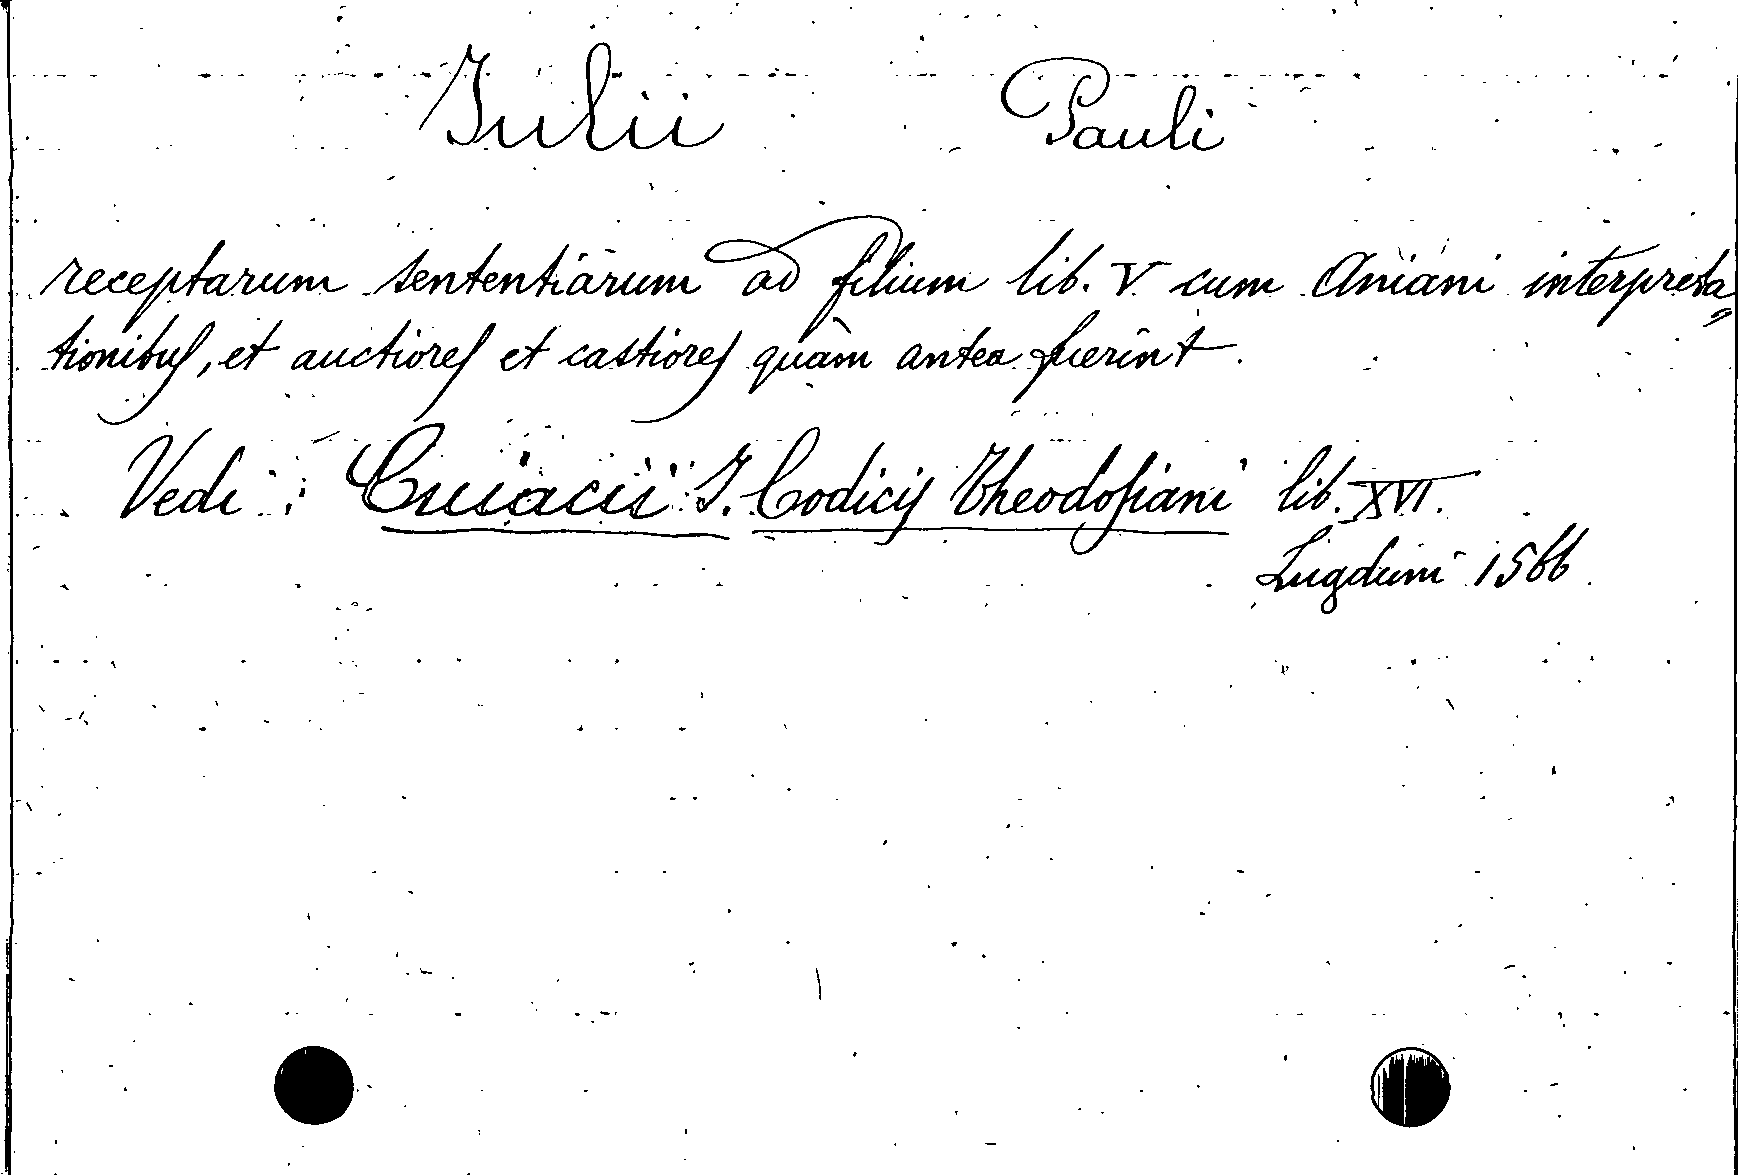 Iulii Pauli
receptarum sententiarum ad filium lib. V cum Aniani interpreta=
tionibus, et auctiores et castiores quàm antea fuerint.
Vedi: Cuiacii I. Codicis Theodosiani lib. XVI.
Lugduni 1566.